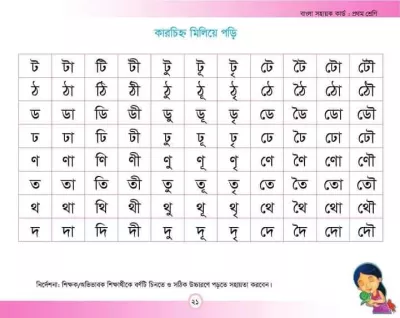 বাংলা সহায়ক কার্ড : প্রথম শ্রেণি
কারচিহ্ন মিলিয়ে পড়ি
ট টা টি টী টু টূ টৃ টে টৈ টো টৌ
ঠ ঠা ঠি ঠী ঠু ঠূ ঠৃ ঠে ঠৈ ঠো ঠৌ
ড ডা ডি ডী ডু ডূ ডৃ ডে ডৈ ডো ডৌ
ঢ ঢা ঢি ঢী ঢু ঢূ ঢৃ ঢে ঢৈ ঢো ঢৌ
ণ ণা ণি ণী ণু ণূ ণৃ ণে ণৈ ণো ণৌ
ত তা তি তী তু তূ তৃ তে তৈ তো তৌ
থ থা থি থী থু থূ থৃ থে থৈ থো থৌ
দ দা দি দী দু দূ দৃ দে দৈ দো দৌ
নির্দেশনা: শিক্ষক/অভিভাবক শিক্ষার্থীকে বর্ণটি চিনতে ও সঠিক উচ্চারণে পড়তে সহায়তা করবেন।
২১